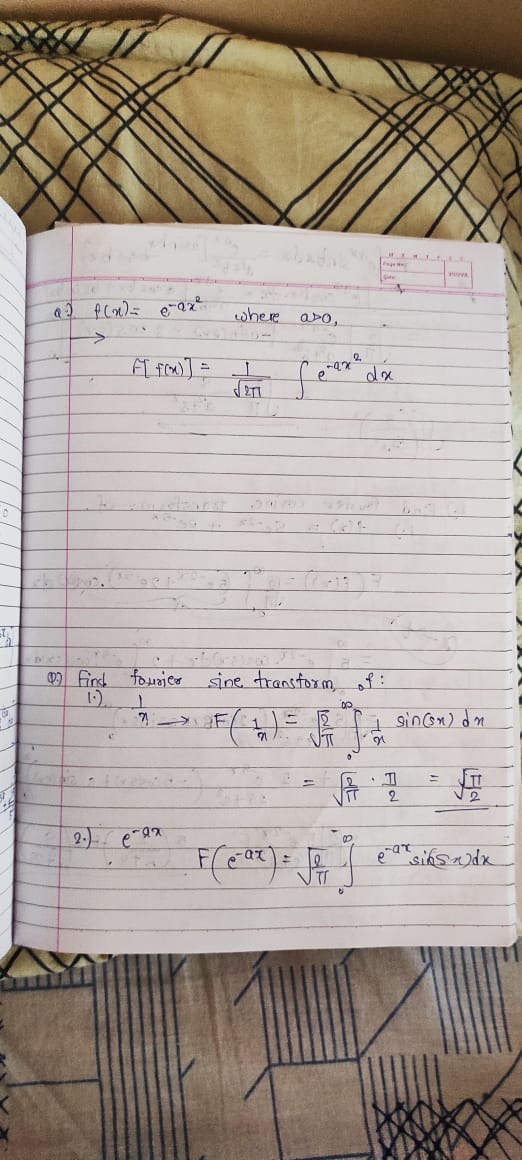 Q.) f(x) = e^-ax² where a>0,
→
F[f(x)] = 1/√2π ∫ e^-ax² dx
Q.) Find fourier sine transform of :
1.) 1/x → F(1/x) = √2/π ∫₀^∞ 1/x sin(sx) dx
= √2/π · π/2 = √π/2
2.) e^-ax
F(e^-ax) = √2/π ∫₀^∞ e^-ax sin(sx)dx